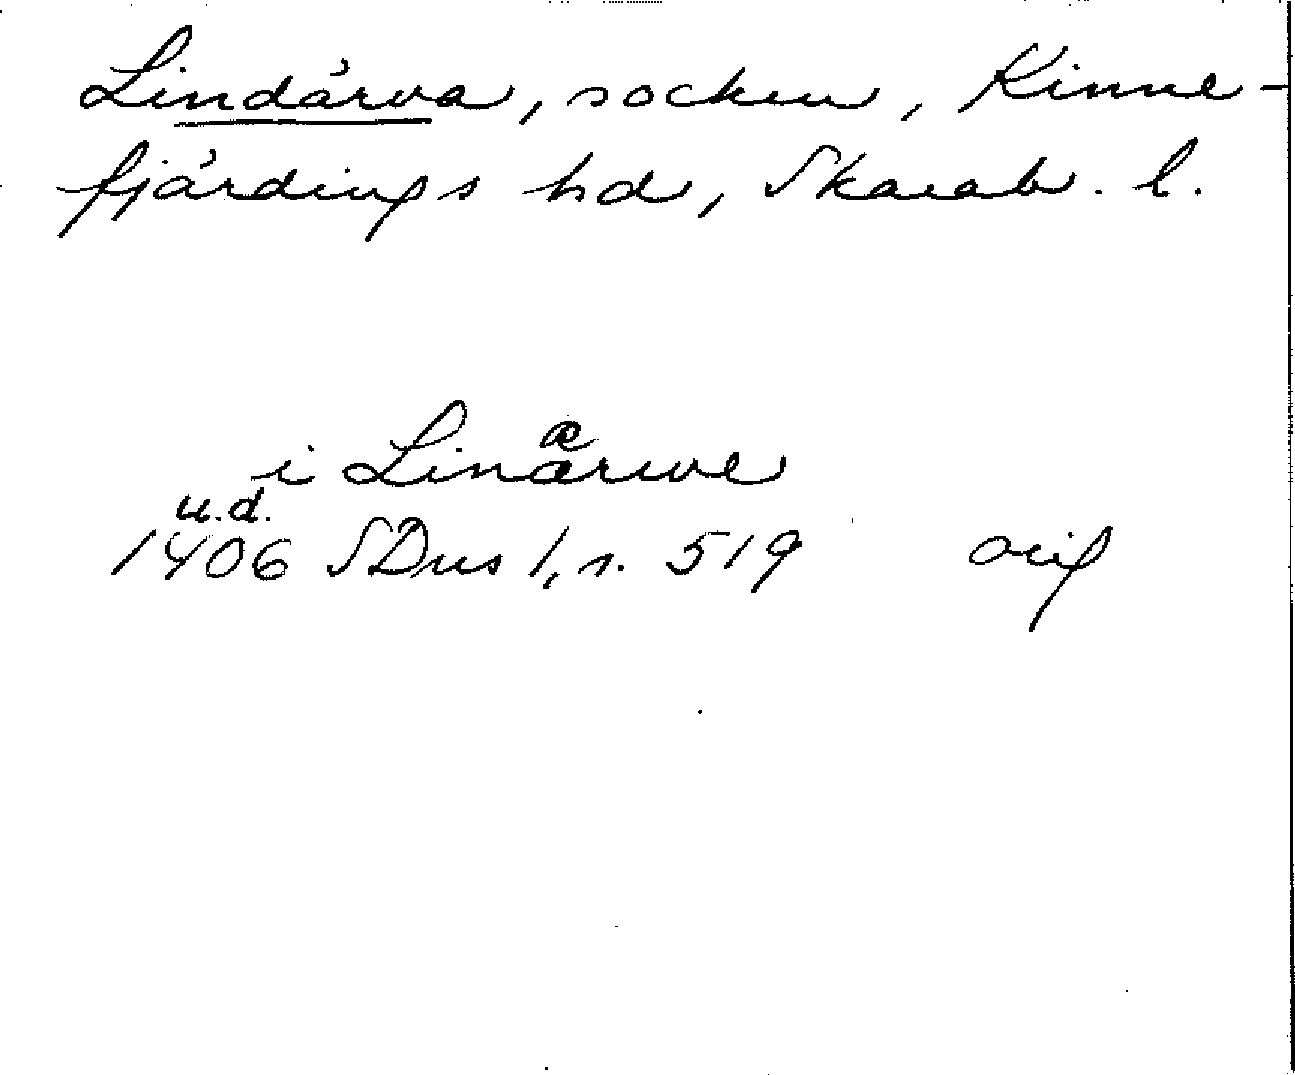 Lindärva, socken, Kinne-
fjärdings hd, Skarab. l.
æ
i Linærwe
u.d.
1406 SDns 1, s. 519 orig